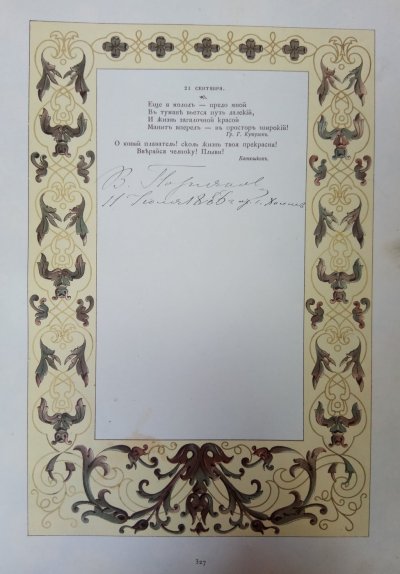 21 СЕНТЯБРЯ.
Еще я молодъ — предо мной
Въ туманѣ вьется путь далекій,
И жизнь загадочной красой
Манитъ впередъ — въ просторъ широкій!
Гр. Г. Кушелевъ.
О юный плаватель! сколь жизнь твоя прекрасна!
Ввѣряйся челноку! Плыви!
В.
11 Іюля 1886 г.
327